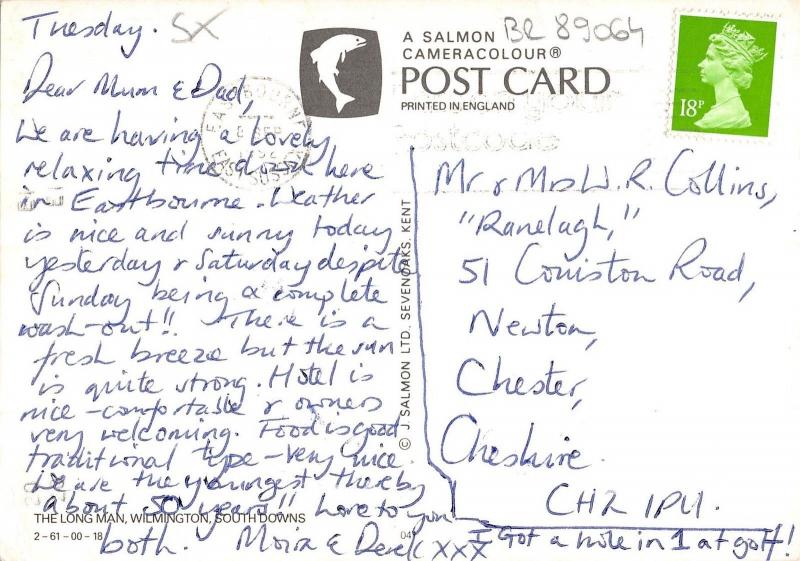 Tuesday.
SX
BR 89064
A SALMON
CAMERACOLOUR®
POST CARD
PRINTED IN ENGLAND
18P
Dear Mum & Dad,
We are having a lovely
relaxing time down here
in Eastbourne. Weather
is nice and sunny today
yesterday & Saturday despite
Sunday being a complete
wash-out!! There is a
fresh breeze but the sun
is quite strong. Hotel is
nice - comfortable & owners
very welcoming. Food is good
traditional type - very nice.
We are the youngest thereby
about 50 years!! Love to you
both. Moira & Derek xxx
I Got a hole in 1 at golf!
Mr & Mrs W. R. Collins,
"Ranelagh,"
51 Coniston Road,
Newton,
Chester,
Cheshire.
CH2 1PU.
© J. SALMON LTD. SEVENOAKS. KENT
THE LONG MAN, WILMINGTON, SOUTH DOWNS
2-61-00-18
EASTBOURNE